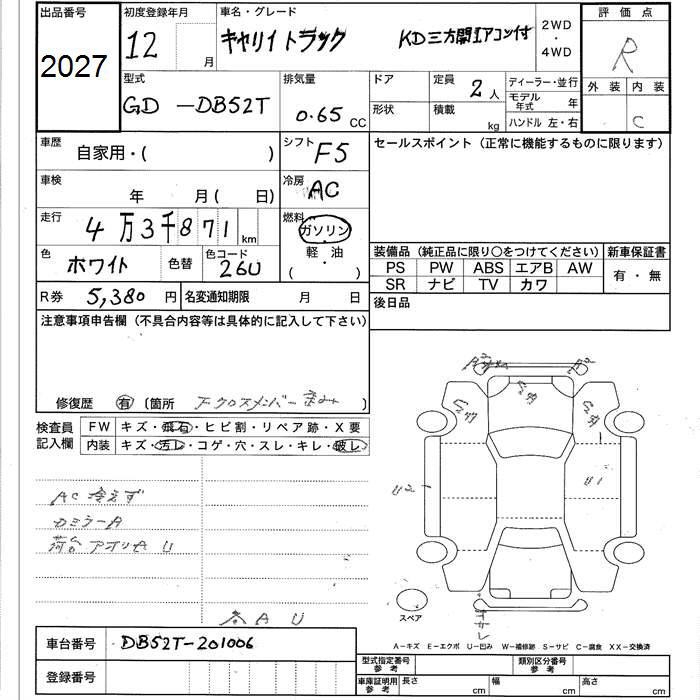 出品番号
2027
初度登録年月
12 月
車名・グレード
キャリイトラック KD三方開Iアコン付
2WD
・
4WD
評価点
R
外装 内装
C
型式
GD -DB52T
排気量
0.65 CC
ドア
形状
定員
2人
積載
kg
ディーラー・並行
モデル年式 年
ハンドル 左・右
車歴
自家用・( )
シフト
F5
セールスポイント(正常に機能するものに限ります)
車検
年 月( 日)
冷房
AC
走行
4万3千871km
燃料
ガソリン
・
軽油
・
( )
色
ホワイト
色替
色コード
26U
装備品(純正品に限り○をつけてください)
新車保証書
PS PW ABS エアB AW
SR ナビ TV カワ
有・無
R券 5,380 円
名変通知期限 月 日
後日品
注意事項申告欄(不具合内容等は具体的に記入して下さい)
修復歴 有 〔箇所 Fクロスメンバー歪み 〕
検査員
記入欄
FW キズ・飛石・ヒビ割・リペア跡・X要
内装 キズ・汚レ・コゲ・穴・スレ・キレ・破レ
AC冷えず
カミラーA
荷台アオリA U
各A U
U2
U1
スペア
A-キズ E-エクボ U-凹み W-補修跡 S-サビ C-腐食 XX-交換済
車台番号 DB52T-201006
登録番号
型式指定番号
参考
類別区分番号
参考
車庫証明用
参考
長さ cm
幅 cm
高さ cm